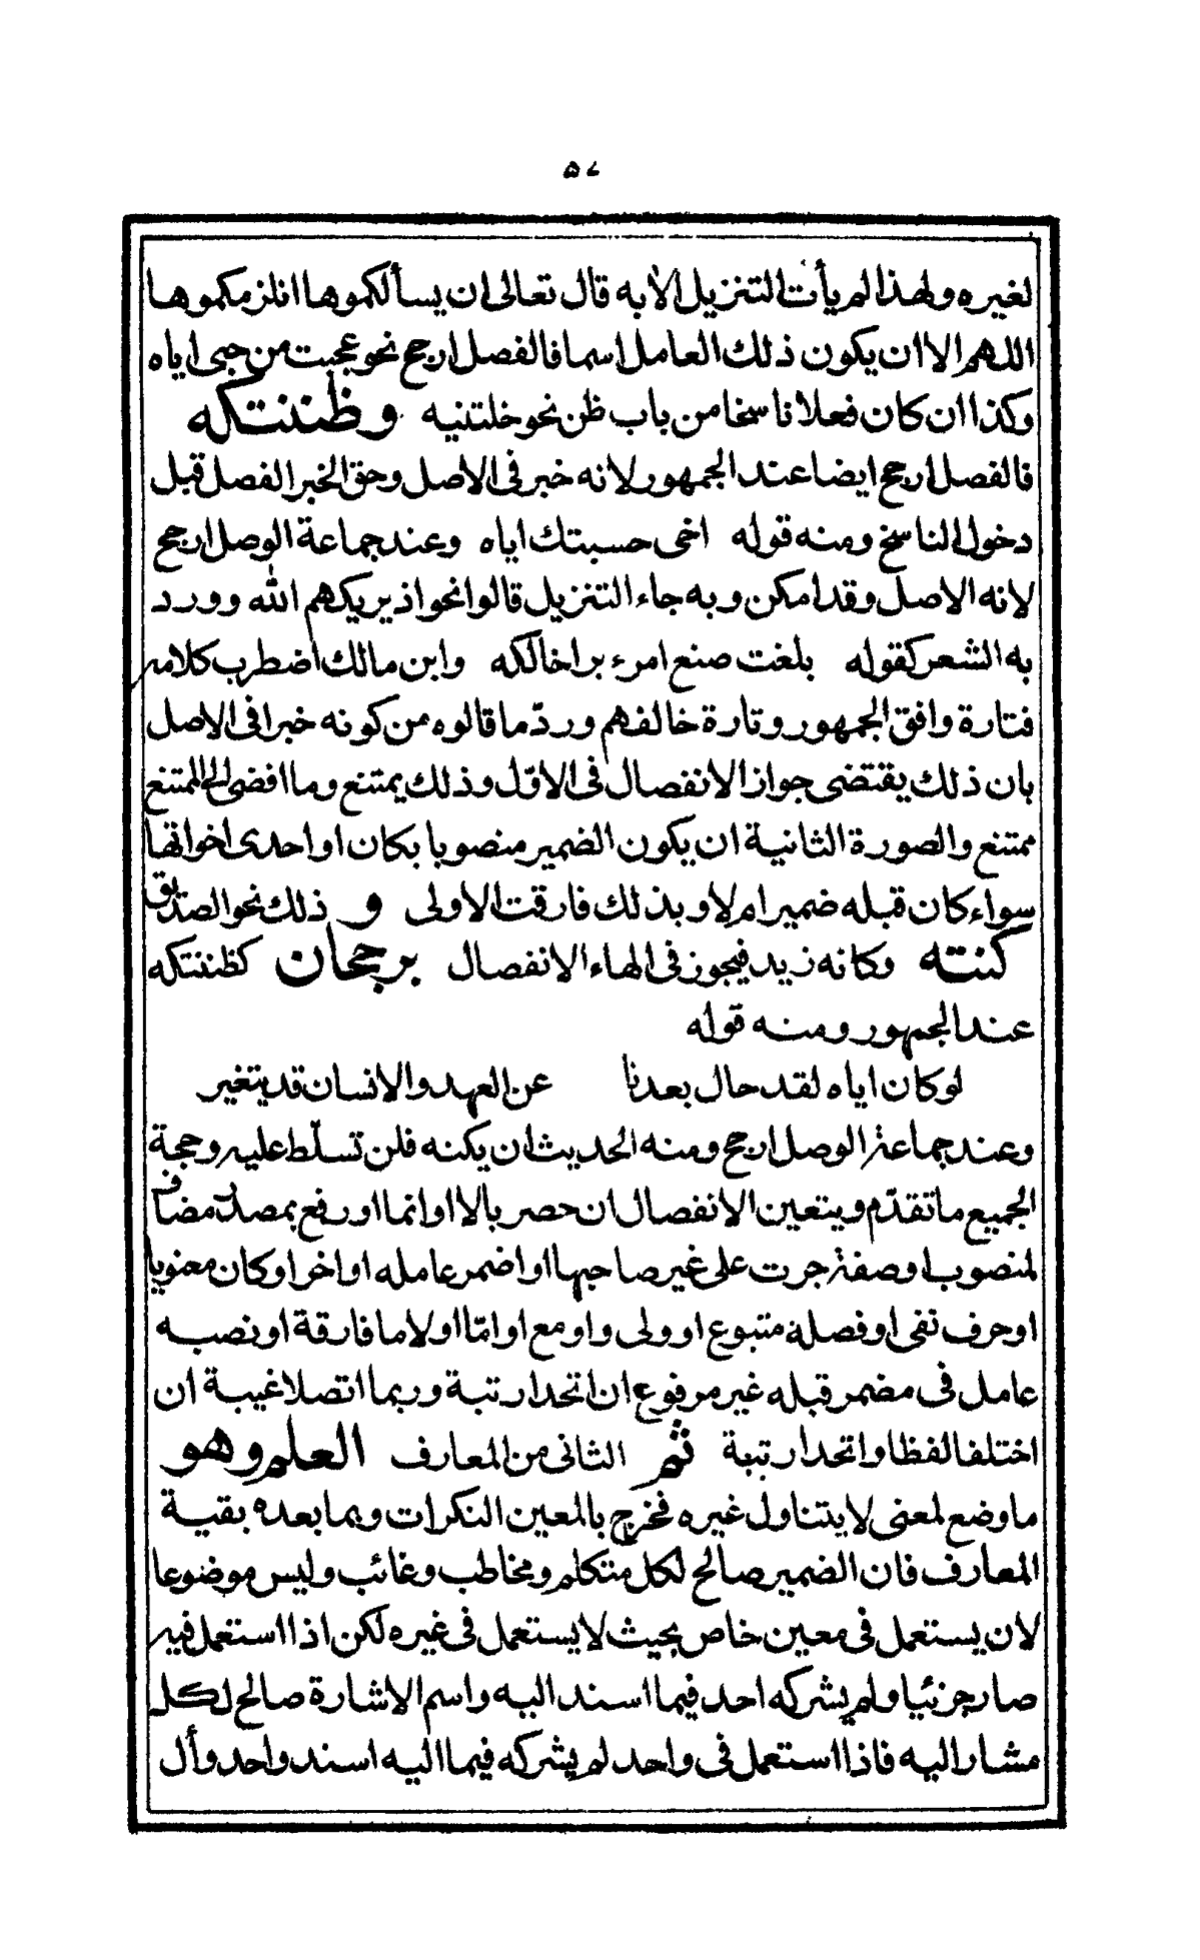 ٥٧
لغيره ولهذا لم يأت التنزيل الا به قال تعالى ان يسألكموها انلزمكموها
اللهم الا ان يكون ذلك العامل اسما فالفصل ارجح نحو عجبت من حبى اياه
وكذا ان كان فعلا ناسخا من باب ظن نحو خلتنيه وظننتكه
فالفصل ارجح ايضا عند الجمهور لانه خبر فى الاصل وحق الخبر الفصل قبل
دخول الناسخ ومنه قوله اخى حسبتك اياه وعند جماعة الوصل ارجح
لانه الاصل وقد امكن وبه جاء التنزيل قالوا نحو اذ يريكهم الله وورد
به الشعر كقوله بلغت صنع امرء بر اخالكه وابن مالك اضطرب كلامه
فتارة وافق الجمهور وتارة خالفهم وردّ ما قالوه من كونه خبرا فى الاصل
بان ذلك يقتضى جواز الانفصال فى الاوّل وذلك يمتنع وما افضى الى الممتنع
ممتنع والصورة الثانية ان يكون الضمير منصوبا بكان او احدى اخواتها
سواء كان قبله ضمير ام لا وبذلك فارقت الاولى و ذلك نحو الصديق
كنته وكانه زيد فيجوز فى الهاء الانفصال برجحان كظننتكه
عند الجمهور ومنه قوله
لو كان اياه لقد حال بعدنا عن العهد والانسان قد يتغير
وعند جماعة الوصل ارجح ومنه الحديث ان يكنه فلن تسلّط عليه وحجة
الجميع ما تقدّم ويتعين الانفصال ان حصر بالا او انما او رفع بمصدر مضاف
لمنصوب او صفة جرت على غير صاحبها او اضمر عامله او اخر او كان معنويا
او حرف نفى او فصله متبوع او ولى واو مع او امّا او لاما فارقة او نصبه
عامل فى مضمر قبله غير مرفوع ان اتحدا رتبة وربما اتصلا غيبة ان
اختلفا لفظا واتحدا رتبة ثم الثانى من المعارف العلم وهو
ما وضع لمعنى لا يتناول غيره فخرج بالمعين النكرات وبما بعده بقية
المعارف فان الضمير صالح لكل متكلم ومخاطب وغائب وليس موضوعا
لان يستعمل فى معين خاص بحيث لا يستعمل فى غيره لكن اذا استعمل فيه
صار جزئيا ولم يشركه احد فيما اسند اليه واسم الاشارة صالح لكل
مشار اليه فاذا استعمل فى واحد لم يشركه فيما اليه اسند واحد وأل